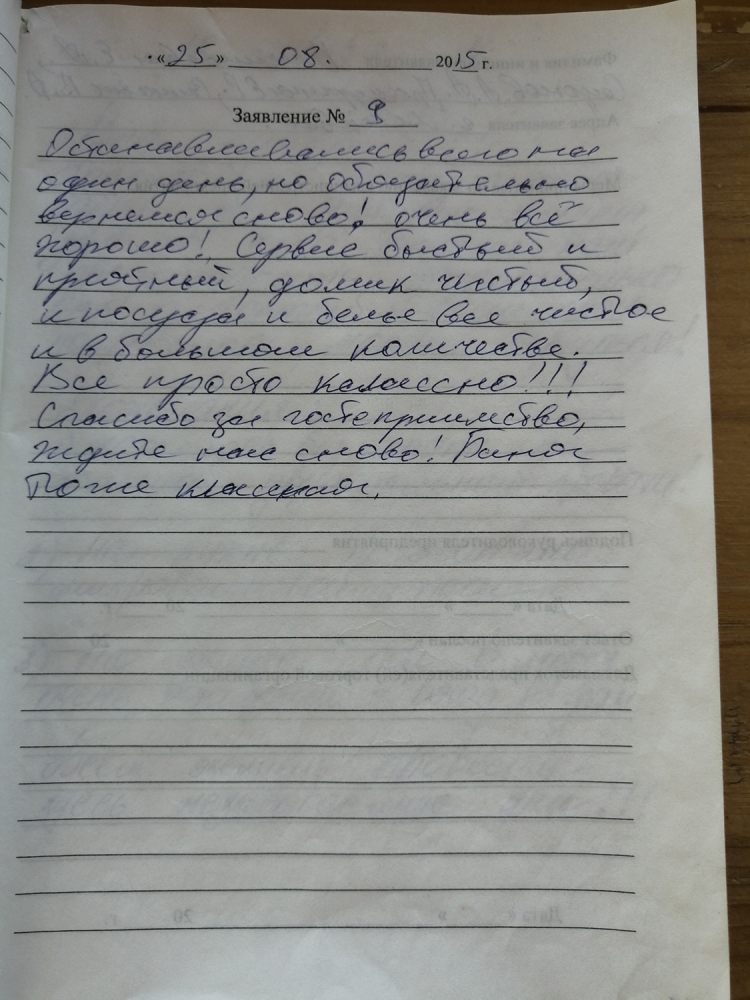 «25» 08. 2015 г.
Заявление № 9
Останавливались всего на
один день, но обязательно
вернемся сново! очень всё
хорошо! Сервис быстый и
приятный, домик чистый,
и посуда и белье все чистое
и в большом количестве.
Все просто калассно!!!
Спасибо за гостеприимство,
ждите нас сново! Баня
тоже классная.
Подпись руководителя предприятия
Дата « » 20 г.
20
Дата « » 20 г.